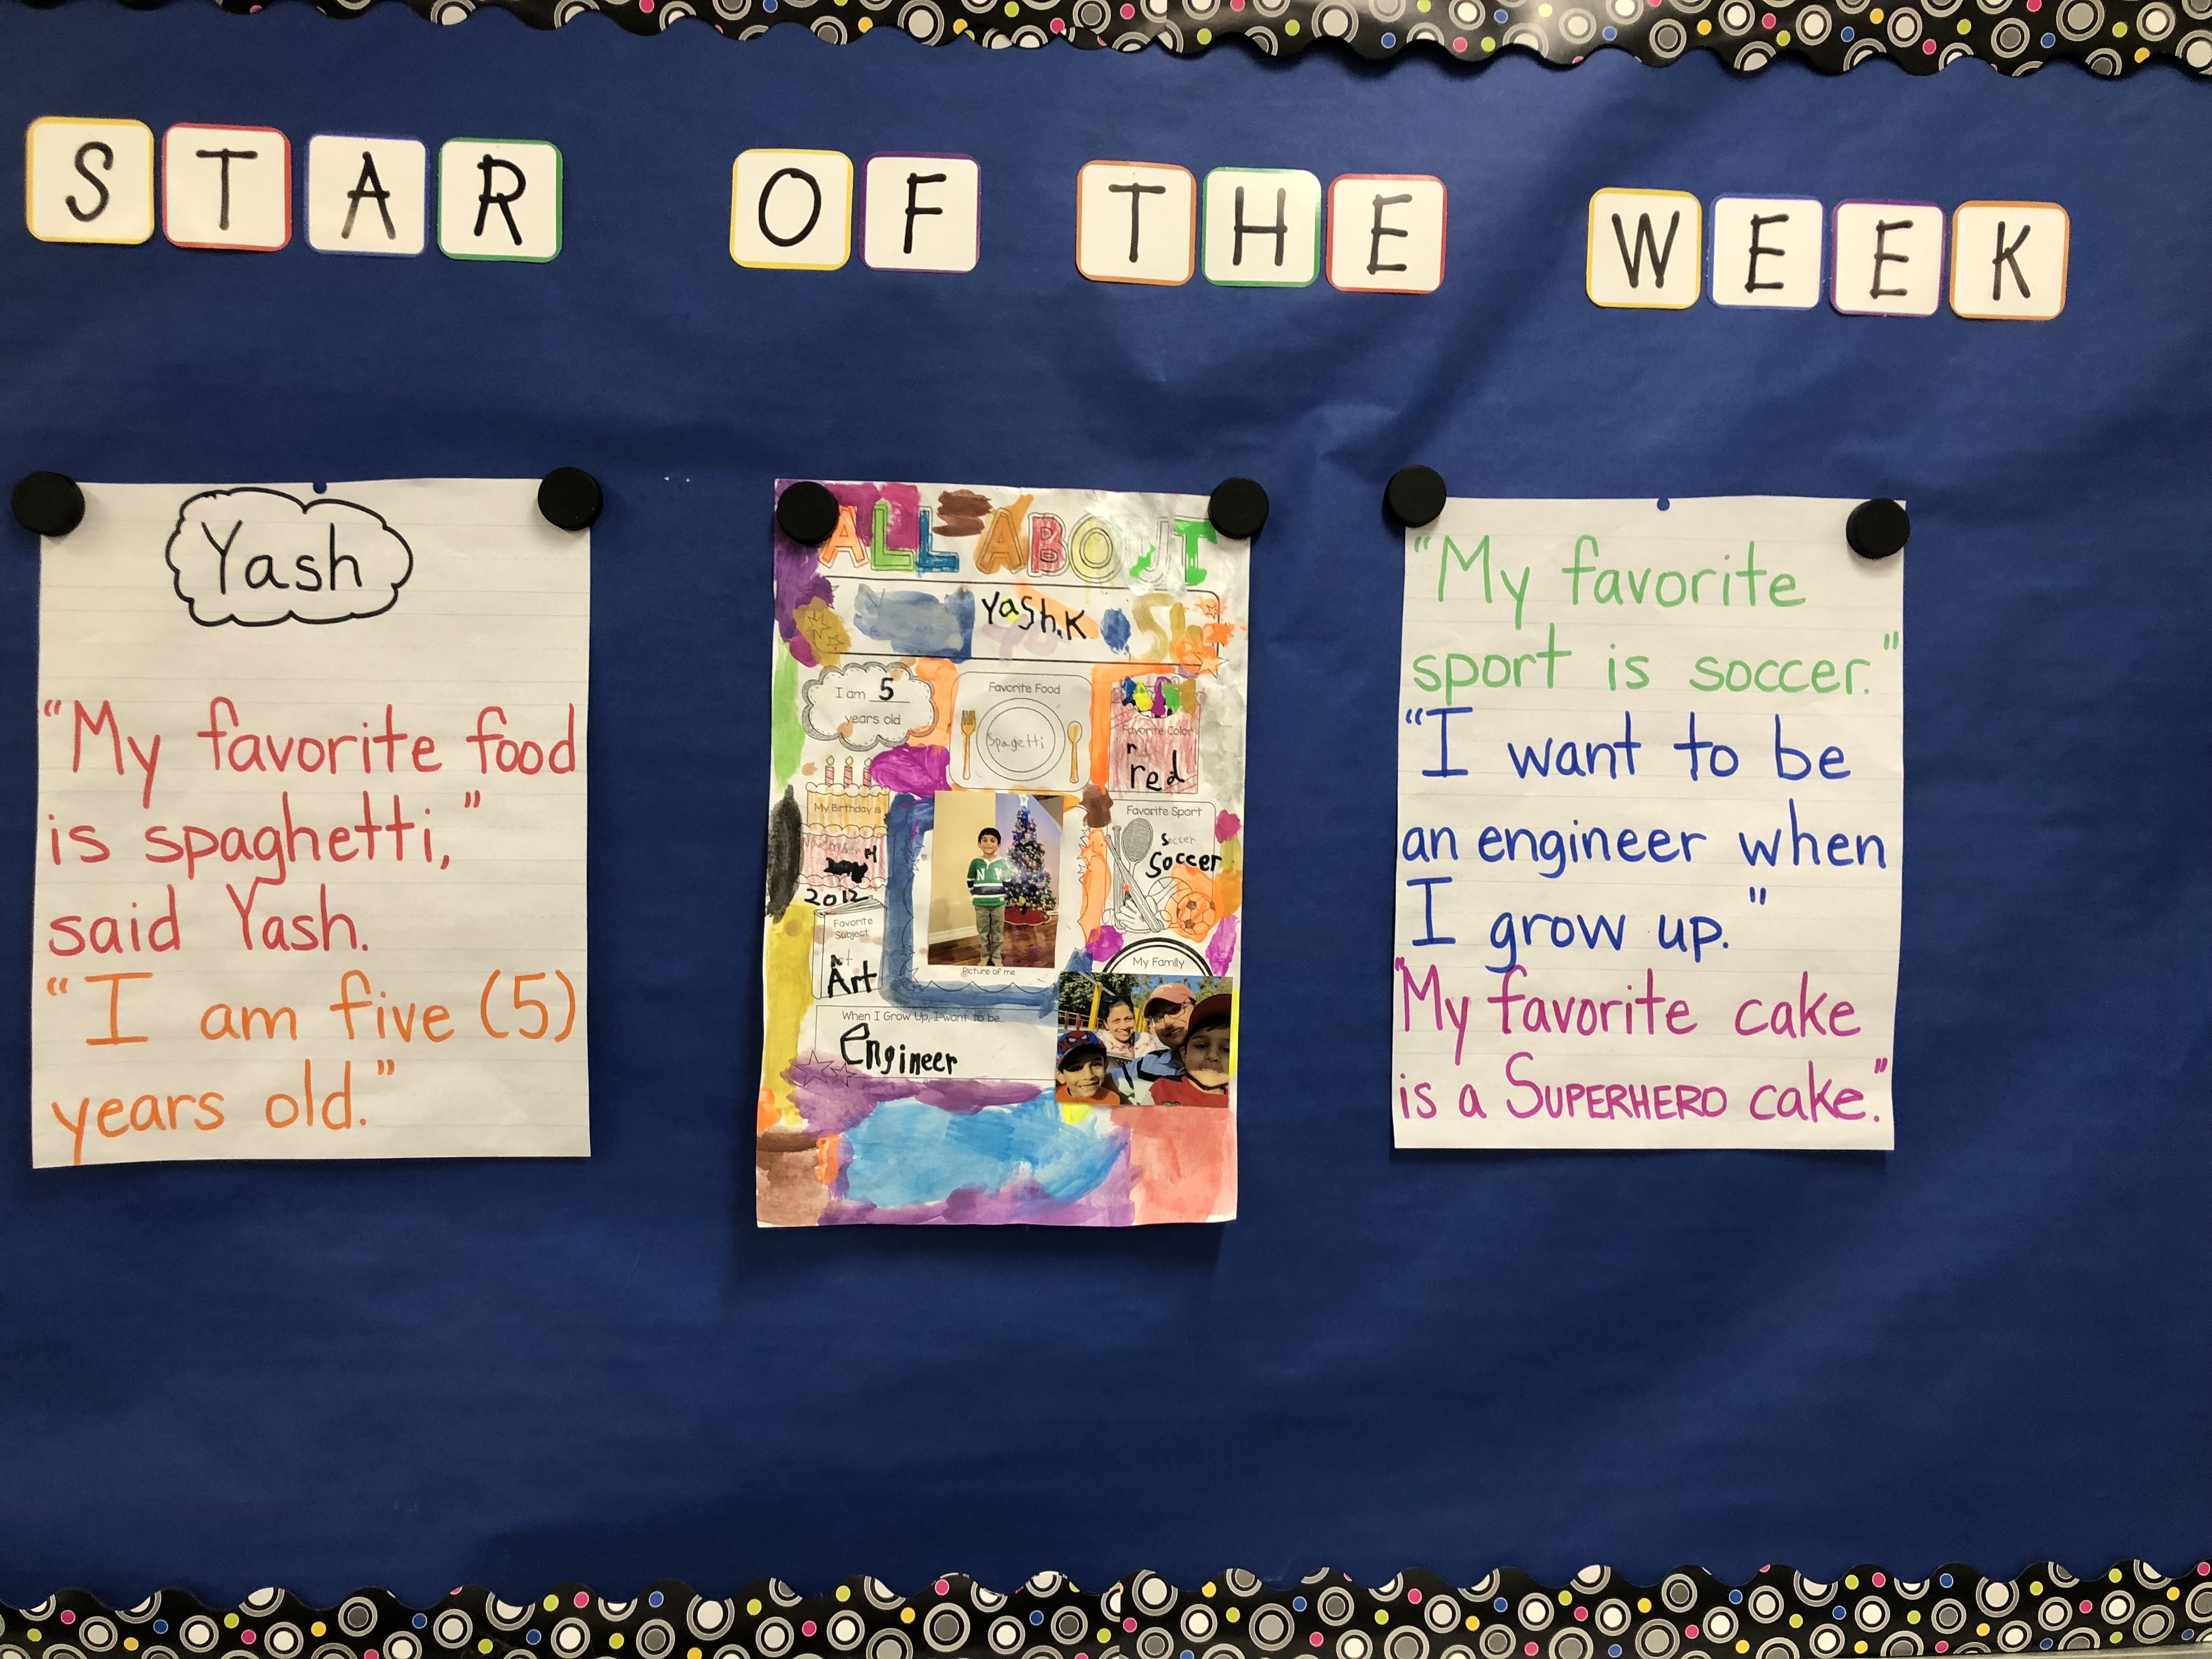 STAR OF THE WEEK
Yash
"My favorite food
is spaghetti,"
said Yash.
"I am five (5)
years old."
ALL ABOUT
Yash.K
I am 5
years old
Favorite Food
Spagetti
Favorite Color
red
My Birthday is
2012
Favorite Sport
Soccer
Soccer
Favorite
Subject
Art
Picture of me
My Family
When I Grow Up, I want to be
Engineer
"My favorite
sport is soccer."
"I want to be
an engineer when
I grow up."
"My favorite cake
is a SUPERHERO cake."